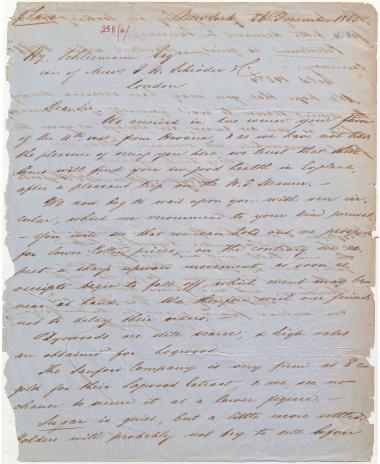 New York 26 December 1865
258 (a)
Hy. Schliemann Esq
care of Messrs J. H. Schröder & Co
London
Dear Sir
We received in due course your favor
of the from & as we have not had
the pleasure of seing you here, we trust that these
lines will find you in good health in England,
after a pleasant trip on the W. I. Steamer. —
We now beg to wait upon you with our cir
cular, which we recommend to your kind perusal
— you will see that we can hold out no prospect
for lower Cotton prices, on the contrary we ex
pect a sharp upward movement, as soon as
receipts begin to fall off, which event may be
near at hand. We therefore wish our friends
not to delay their orders.
Dyewoods are still scarce, & high rates
are obtained for Logwood.
The Sanford Company is very firm at 8 c
gold for their Logwood Extract, & we see no
chance to secure it at a lower figure. —
Sugar is quiet, but a little more settled
holders will probably not try to sell before